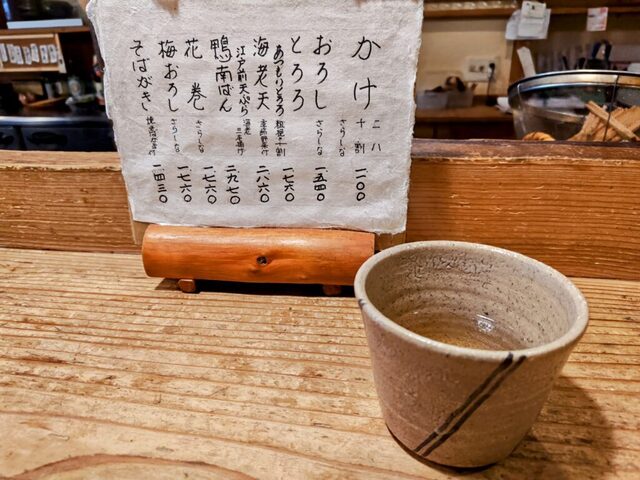 かけ 二八 十割 さらしな 一一〇〇
おろし さらしな 一五四〇
とろろ 一七六〇
あつもりとろろ 粗挽十割
海老天 二八六〇
江戸前天ぷら 海老
鴨南ばん 二九七〇
花巻 さらしな 一七六〇
梅おろし さらしな 一七六〇
そばがき 一四三〇